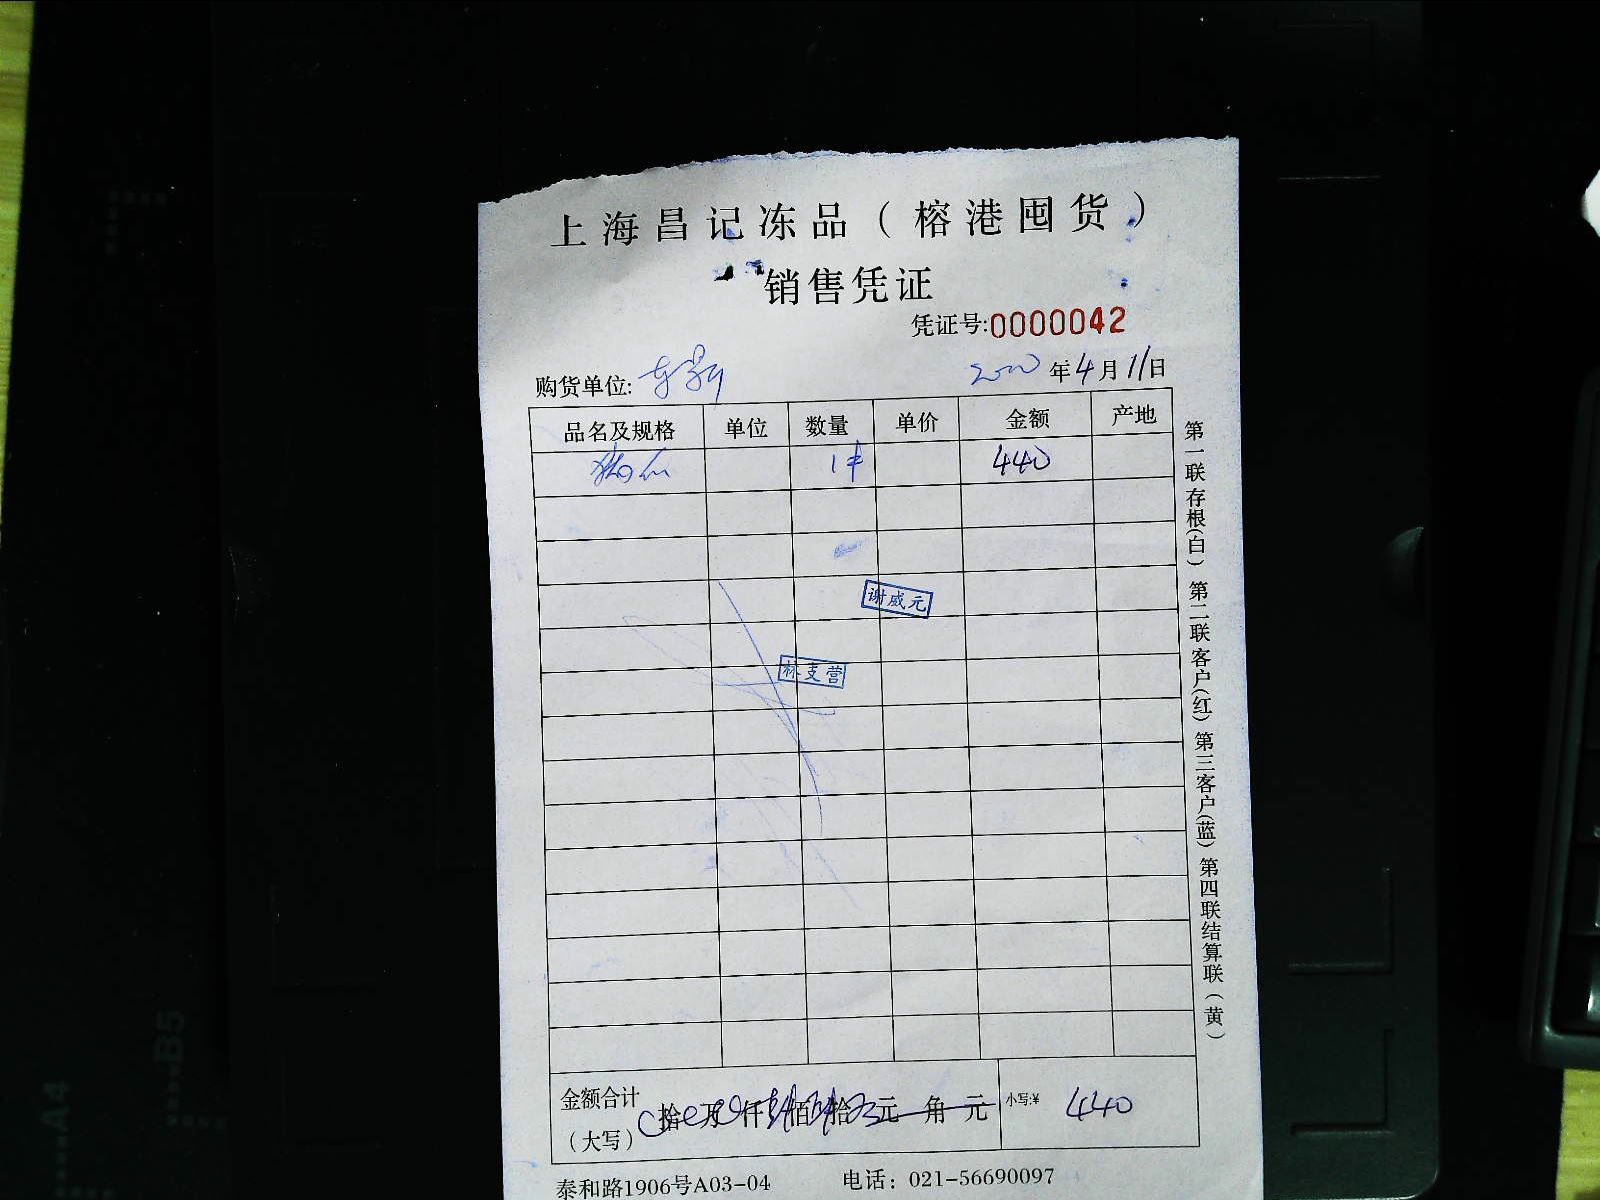 上海昌记冻品（榕港囤货）
销售凭证
凭证号:0000042
购货单位: 年4月11日
品名及规格 单位 数量 单价 金额 产地
1件 440
谢威元
林支营
金额合计 拾 万 仟 佰 拾 元 角 元 小写:¥ 440
（大写）
泰和路1906号A03-04 电话：021-56690097
第一联存根(白) 第二联客户(红) 第三客户(蓝) 第四联结算联(黄)